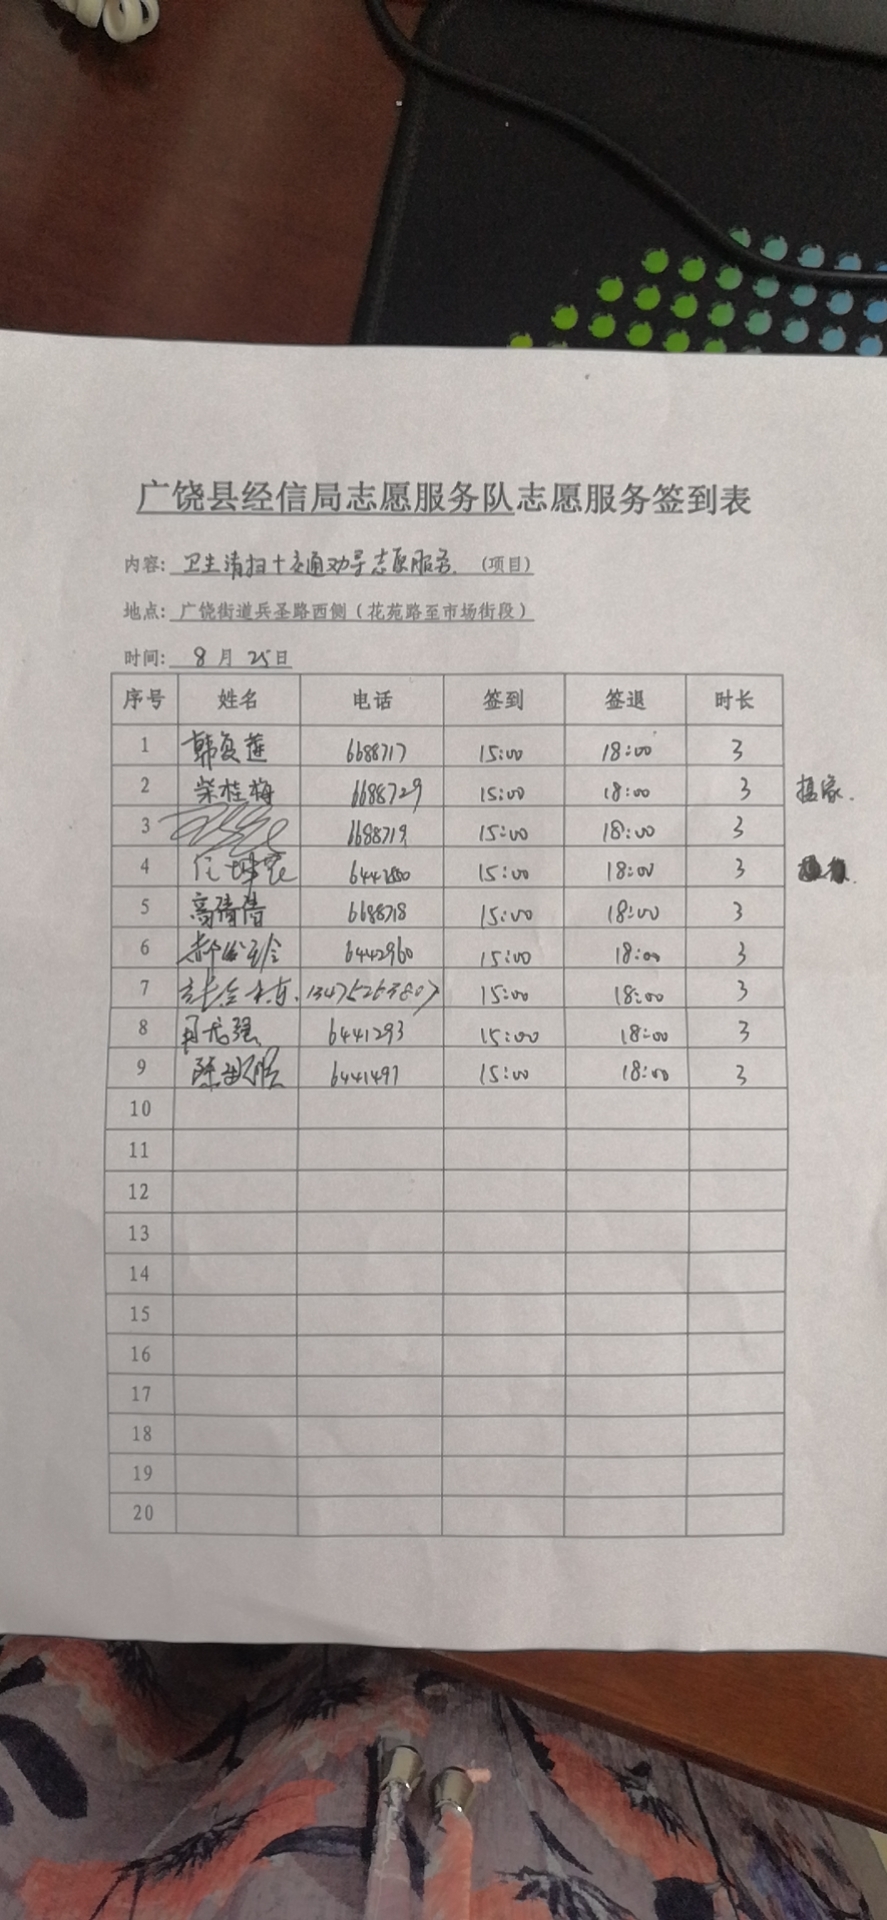 广饶县经信局志愿服务队志愿服务签到表
内容: 卫生清扫+交通劝导志愿服务. (项目)
地点: 广饶街道兵圣路西侧(花苑路至市场街段)
时间: 8月25日
序号 姓名 电话 签到 签退 时长
1 韩复莲 6688717 15:00 18:00 3
2 柴桂梅 6688729 15:00 18:00 3
3 6688719 15:00 18:00 3
4 15:00 18:00 3
5 高倩倩 6688718 15:00 18:00 3
6 6442960 15:00 18:00 3
7 13475263807 15:00 18:00 3
8 6441293 15:00 18:00 3
9 6441497 15:00 18:00 3
10
11
12
13
14
15
16
17
18
19
20